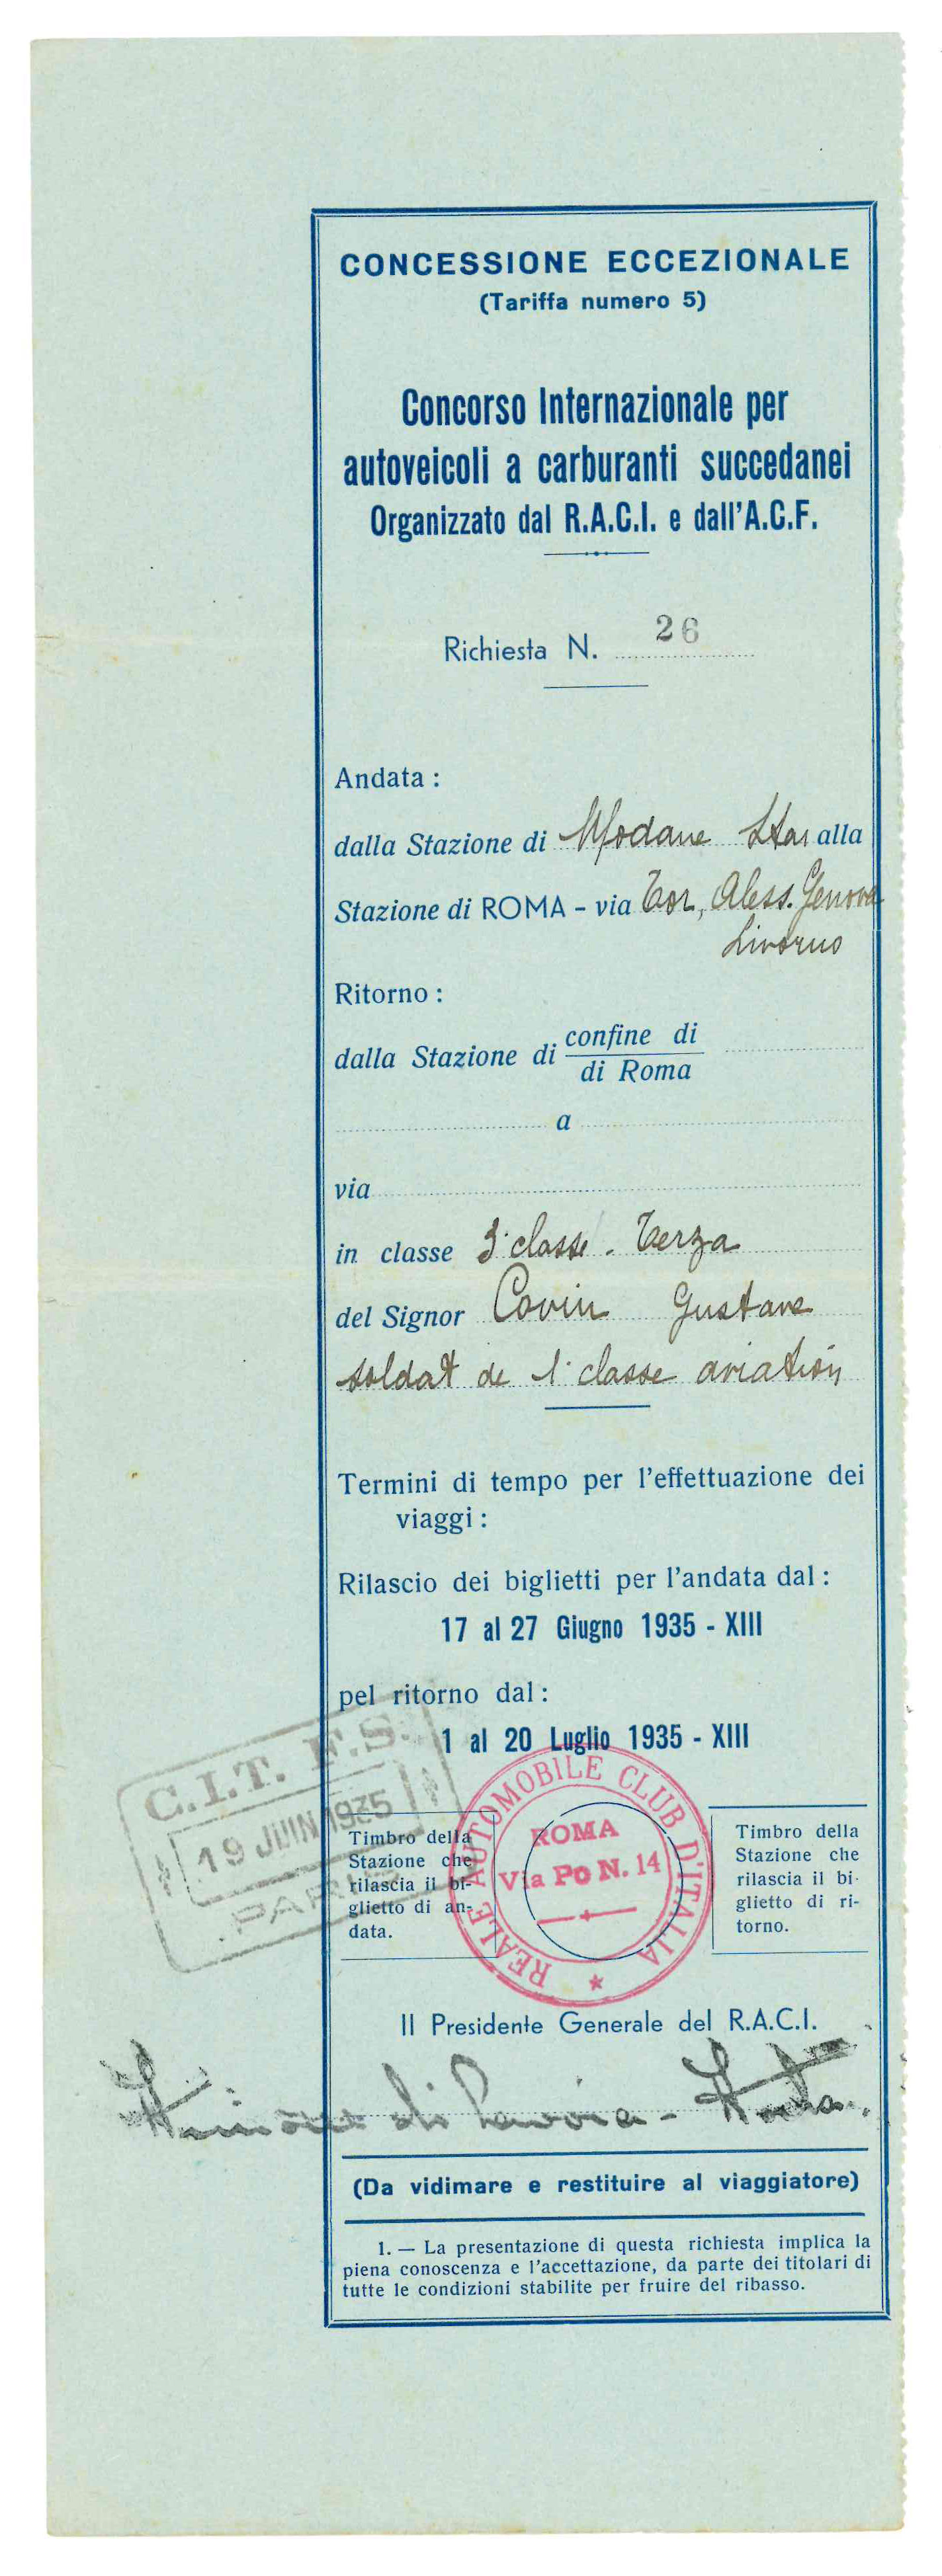 CONCESSIONE ECCEZIONALE
(Tariffa numero 5)
Concorso Internazionale per
autoveicoli a carburanti succedanei
Organizzato dal R.A.C.I. e dall'A.C.F.
Richiesta N. 26
Andata :
dalla Stazione di Modane alla
Stazione di ROMA - via Tor, Aless. Genova
Livorno
Ritorno :
dalla Stazione di confine di
di Roma
a
via
in classe 3e classe. Terza
del Signor Covin Gustave
soldat de 1e classe aviation
Termini di tempo per l'effettuazione dei
viaggi :
Rilascio dei biglietti per l'andata dal :
17 al 27 Giugno 1935 - XIII
pel ritorno dal :
1 al 20 Luglio 1935 - XIII
C.I.T. F.S.
19 JUIN 1935
PARIS
Timbro della
Stazione che
rilascia il bi-
glietto di an-
data.
REALE AUTOMOBILE CLUB D'ITALIA
ROMA
Via Po N. 14
Timbro della
Stazione che
rilascia il bi-
glietto di ri-
torno.
Il Presidente Generale del R.A.C.I.
di Savoia -
(Da vidimare e restituire al viaggiatore)
1. — La presentazione di questa richiesta implica la
piena conoscenza e l'accettazione, da parte dei titolari di
tutte le condizioni stabilite per fruire del ribasso.